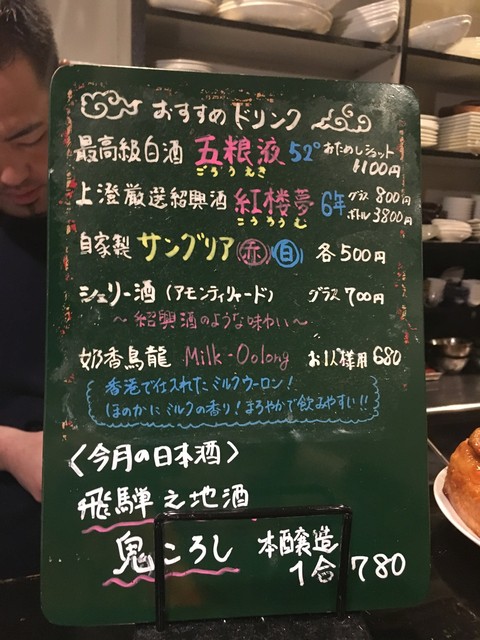 おすすめドリンク
最高級白酒 五粮液 52° おためしショット
ごろうえき 1100円
上澄厳選紹興酒 紅楼夢 6年 グラス 800円
こうろうむ ボトル 3800円
自家製 サングリア 赤 白 各500円
シェリー酒(アモンティリャード) グラス 700円
~紹興酒のような味わい~
奶香烏龍 Milk-Oolong お1人様用 680
香港で仕入れたミルクウーロン!
ほのかにミルクの香り!まろやかで飲みやすい!!
〈今月の日本酒〉
飛騨之地酒
鬼ころし 本醸造
1合 780